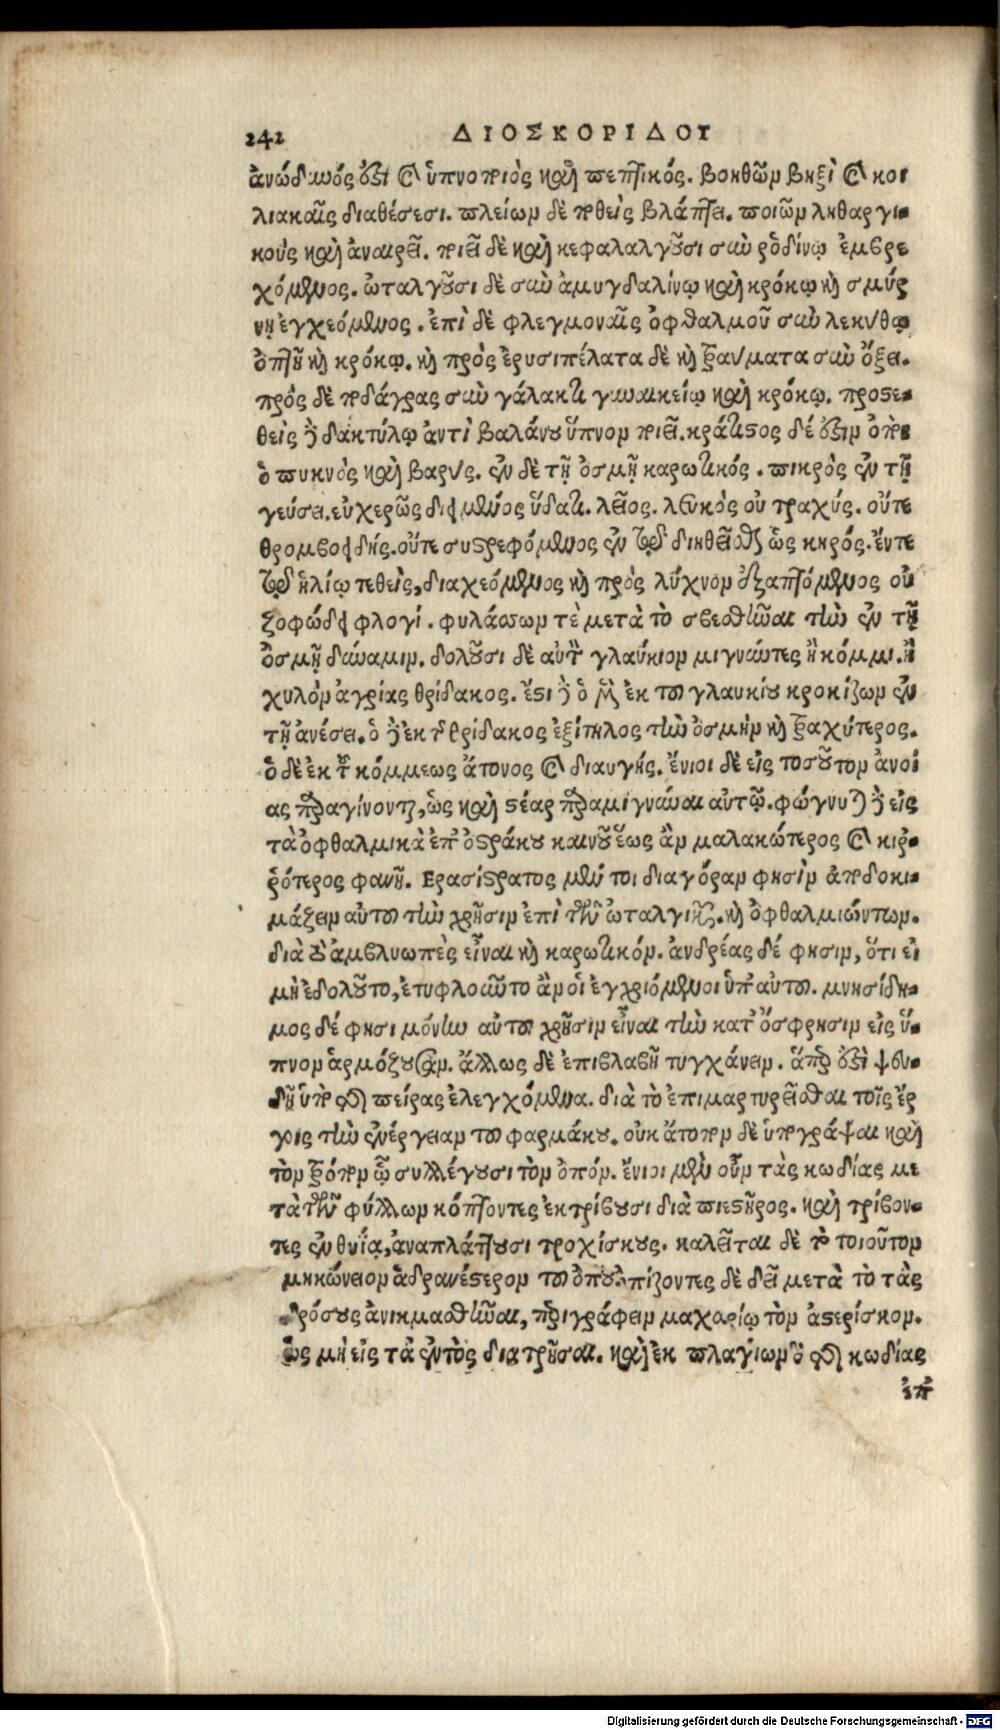 242 ΔΙΟΣΚΟΡΙΔΟΥ
ἀνώδυνός ἐστι καὶ ὑπνοποιὸς καὶ πεπτικός. βοηθῶν βηξὶ καὶ κοι
λιακαῖς διαθέσεσι. πλείων δὲ ποθεὶς βλάπτει. ποιῶν ληθαργι-
κοὺς καὶ ἀναιρεῖ. ποιεῖ δὲ καὶ κεφαλαλγοῦσι σὺν ῥοδίνῳ ἐμβρε
χόμενος. ὠταλγοῦσι δὲ σὺν ἀμυγδαλίνῳ καὶ κρόκῳ καὶ σμύρ
νῃ ἐγχεόμενος. ἐπὶ δὲ φλεγμοναῖς ὀφθαλμοῦ σὺν λεκύθῳ
ὀπτοῦ καὶ κρόκῳ. καὶ πρὸς ἐρυσιπέλατα δὲ καὶ τραύματα σὺν ὄξει.
πρὸς δὲ ποδάγρας σὺν γάλακτι γυναικείῳ καὶ κρόκῳ. προστε-
θεὶς δὲ δακτύλῳ ἀντὶ βαλάνου ὕπνον ποιεῖ. κράτιστος δέ ἐστιν ὀπὸς
ὁ πυκνὸς καὶ βαρύς. ἐν δὲ τῇ ὀσμῇ καρωτικός. πικρὸς ἐν τῇ
γεύσει. εὐχερῶς διειμένος ὕδατι. λεῖος. λευκὸς οὐ τραχύς. οὔτε
θρομβοειδής. οὔτε συστρεφόμενος ἐν τῷ διηθεῖσθαι ὡς κηρός. ἔν τε
τῷ ἡλίῳ τεθεὶς, διαχεόμενος καὶ πρὸς λύχνον ἐξαπτόμενος οὐ
ζοφώδει φλογί. φυλάσσων τὲ μετὰ τὸ σβεσθῆναι τὴν ἐν τῇ
ὀσμῇ δύναμιν. δολοῦσι δὲ αὐτὸν γλαύκιον μιγνύντες ἢ κόμμι. ἢ
χυλὸν ἀγρίας θρίδακος. ἔστι δὲ ὁ μὲν ἐκ τοῦ γλαυκίου κροκίζων ἐν
τῇ ἀνέσει. ὁ δὲ ἐκ τῆς θρίδακος ἐξίτηλος τὴν ὀσμὴν καὶ τραχύτερος.
ὁ δὲ ἐκ τοῦ κόμμεως ἄτονος καὶ διαυγής. ἔνιοι δὲ εἰς τοσοῦτον ἀνοί
ας παραγίνονται, ὡς καὶ στέαρ παραμιγνύναι αὐτῷ. φώγνυται δὲ εἰς
τὰ ὀφθαλμικὰ ἐπ᾽ ὀστράκου καινοῦ ἕως ἂν μαλακώτερος καὶ κιρ-
ρότερος φανῇ. Ερασίστρατος μέν τοι διαγόραν φησὶν ἀποδοκι-
μάζειν αὐτοῦ τὴν χρῆσιν ἐπὶ τῶν ὠταλγικῶν. καὶ ὀφθαλμιώντων.
διὰ τὸ ἀμβλυωπὲς εἶναι καὶ καρωτικόν. ἀνδρέας δέ φησιν, ὅτι εἰ
μὴ ἐδολοῦτο, ἐτυφλοῦντο ἂν οἱ ἐγχριόμενοι ὑπ᾽ αὐτοῦ. μνησίδη-
μος δέ φησι μόνην αὐτοῦ χρῆσιν εἶναι τὴν κατ᾽ ὄσφρησιν εἰς ὕ-
πνον ἁρμόζουσαν. ἄλλως δὲ ἐπιβλαβῆ τυγχάνειν. ἅπερ ἐστὶ ψευ-
δῆ ὑπὸ τῆς πείρας ἐλεγχόμενα. διὰ τὸ ἐπιμαρτυρεῖσθαι τοῖς ἔρ
γοις τὴν ἐνέργειαν τοῦ φαρμάκου. οὐκ ἄτοπον δὲ ὑπογράψαι καὶ
τὸν τρόπον ᾧ συλλέγουσι τὸν ὀπόν. ἔνιοι μὲν οὖν τὰς κωδίας με
τὰ τῶν φύλλων κόπτοντες ἐκτρίβουσι διὰ πιεστῆρος. καὶ τρίβον-
τες ἐν θυΐᾳ, ἀναπλάττουσι τροχίσκους. καλεῖται δὲ τὸ τοιοῦτον
μηκώνειον ἀδρανέστερον τοῦ ὀποῦ. ὀπίζοντες δὲ δεῖ μετὰ τὸ τὰς
δρόσους ἀνικμασθῆναι, περιγράφειν μαχαρίῳ τὸν ἀστερίσκον.
ὡς μὴ εἰς τὰ ἐντὸς διατρῦσαι. καὶ ἐκ πλαγίων δὲ τῆς κωδίας
ἐπ᾽